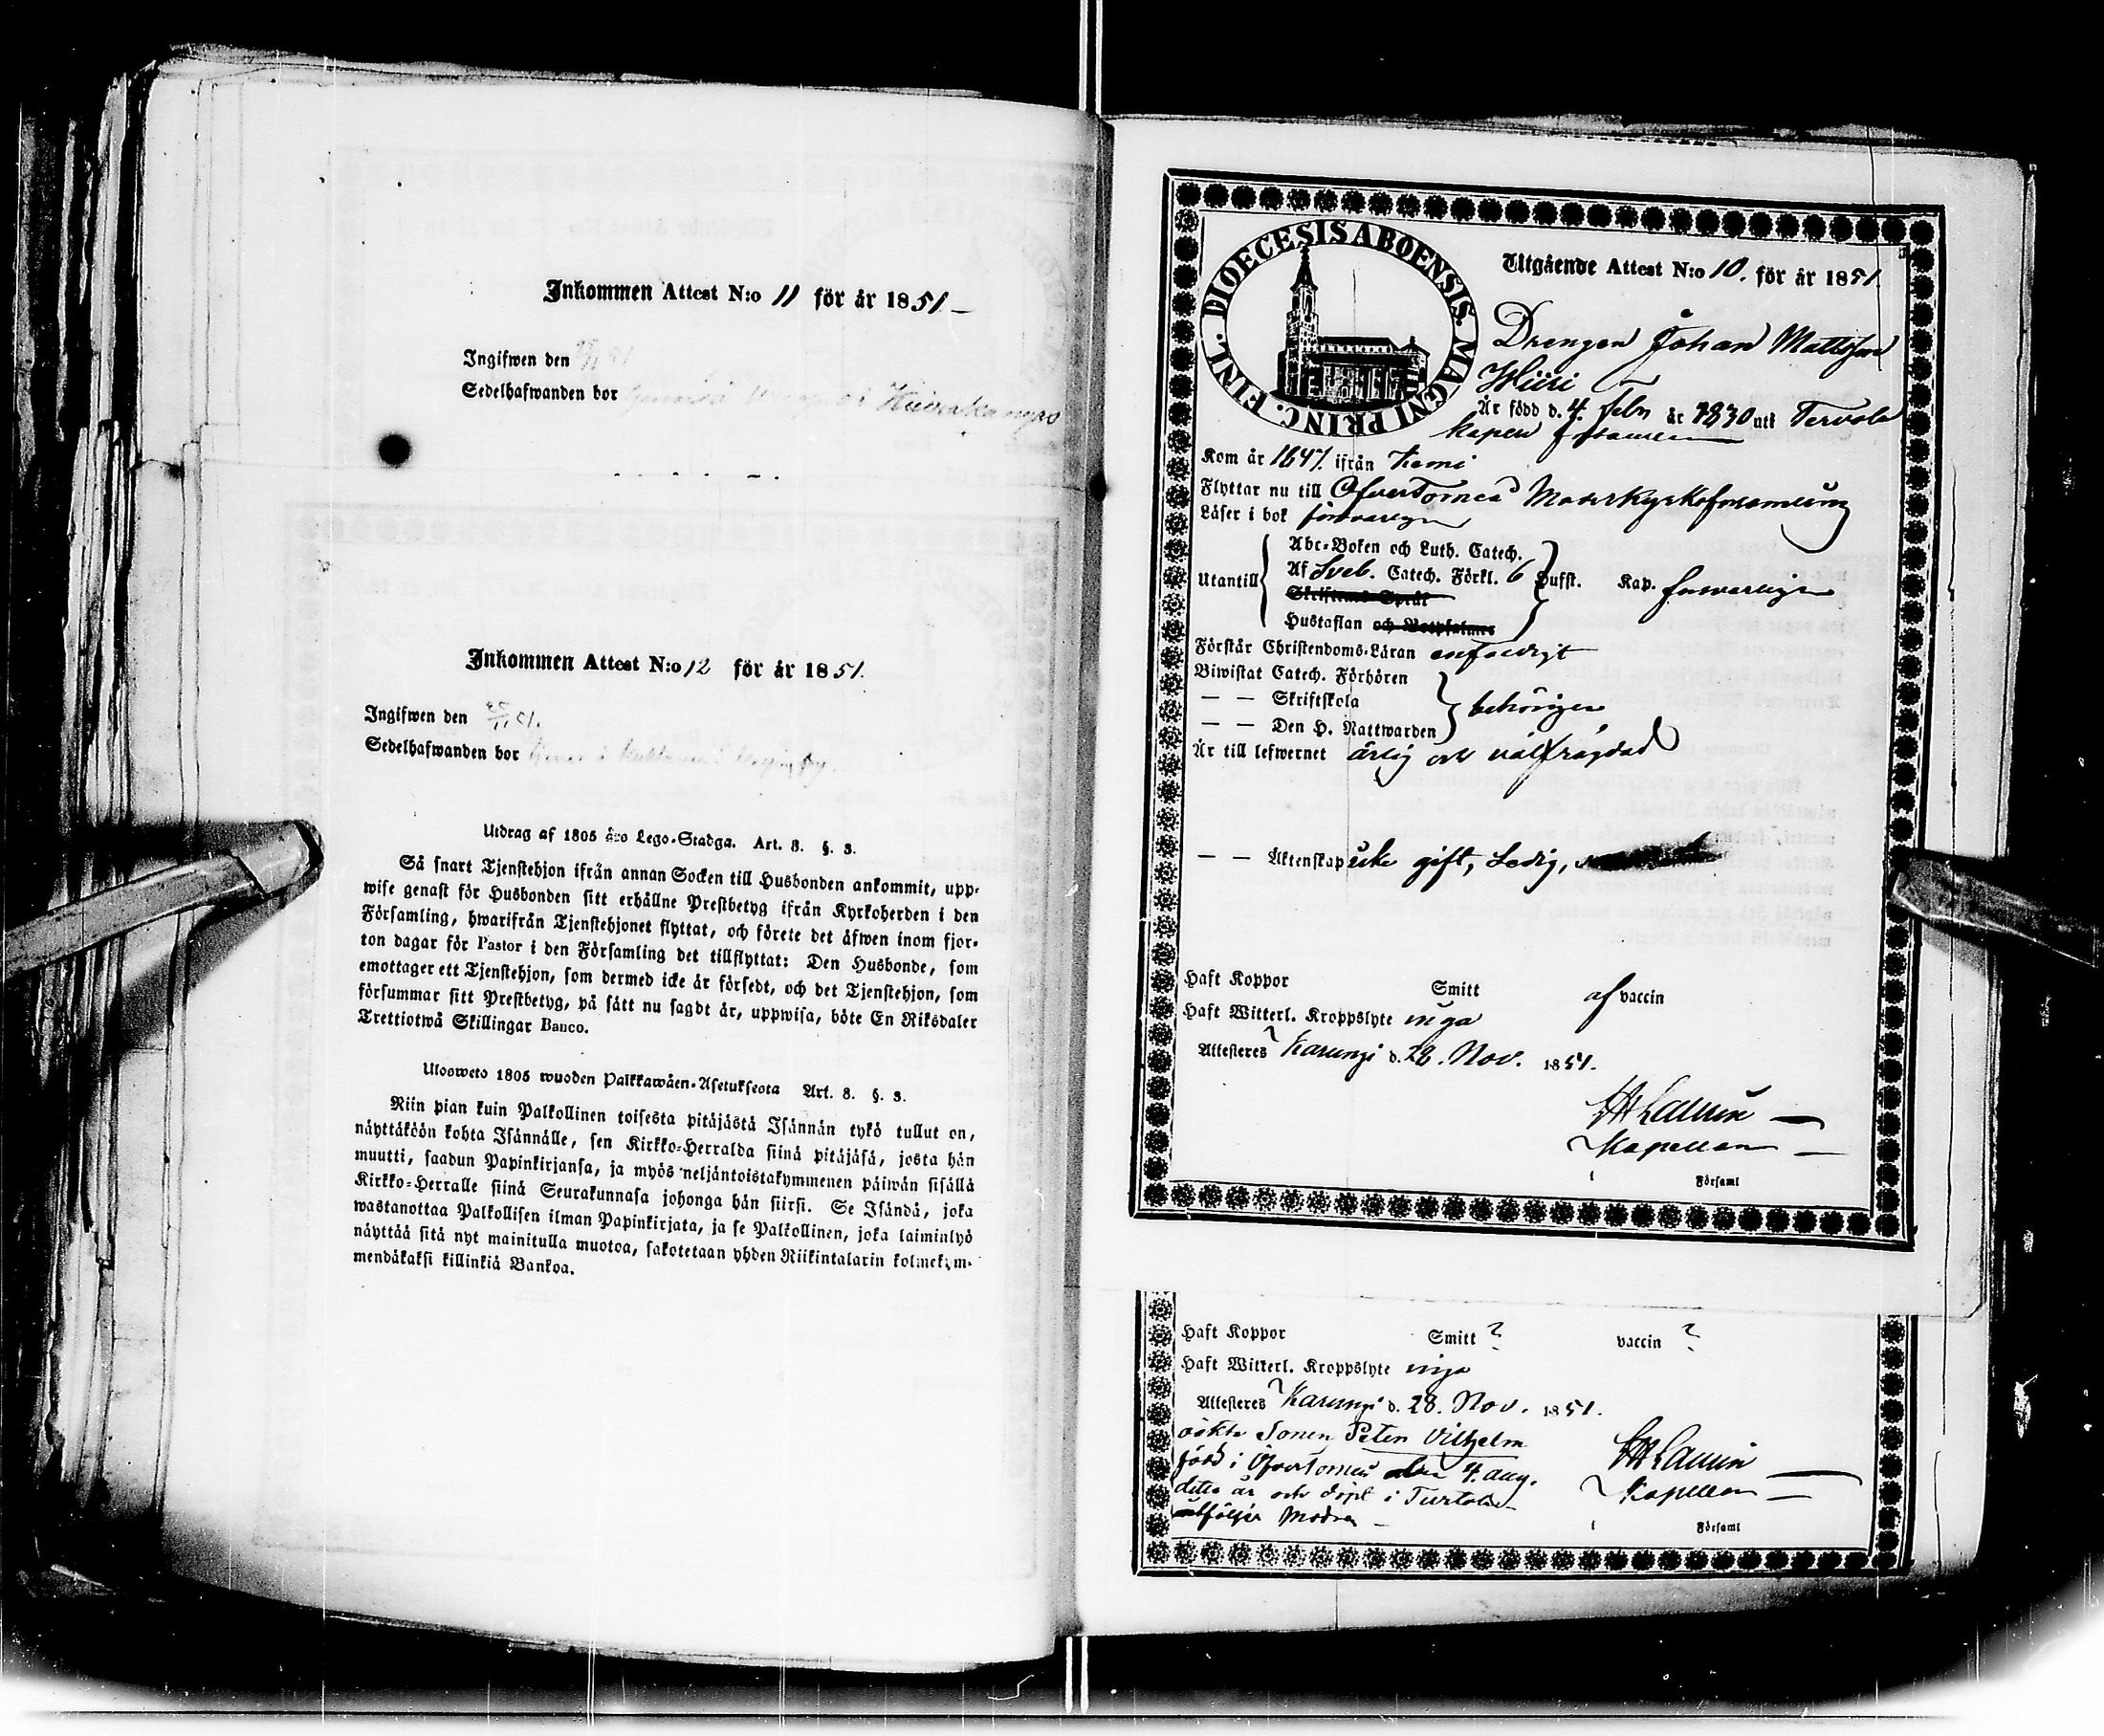 Inkommen Attest N:o 11 för år 1851
Ingifwen den
Sedelhafwanden bor
Inkommen Attest N:o 12 för år 1851.
Ingifwen den
Sedelhafwanden bor
Utdrag af 1805 års Lego-Stadga. Art. 8. §. 3.
Så snart Tjenstehjon ifrån annan Socken till Husbonden ankommit, upp-
wise genast för Husbonden sitt erhållne Prestbetyg ifrån Kyrkoherden i den
Församling, hwarifrån Tjenstehjonet flyttat, och förete det äfwen inom fjor-
ton dagar för Pastor i den Församling det tillflyttat: Den Husbonde, som
emottager ett Tjenstehjon, som dermed icke är försedt, och det Tjenstehjon, som
försummar sitt Prestbetyg, på sätt nu sagdt är, uppwisa, böte En Riksdaler
Trettiotwå Skillingar Banco.
Ulosweto 1805 wuoden Palkkawäen-Asetuksesta Art. 8. §. 3.
Niin pian kuin Palkollinen toisesta pitäjästä Isännän tykö tullut on,
näyttäköön kohta Isännälle, sen Kirkko-Herralda siinä pitäjäsä, josta hän
muutti, saadun Papinkirjansa, ja myös neljäntoistakymmenen päiwän sisällä
Kirkko-Herralle siinä Seurakunnasa johonga hän siirsi. Se Isändä, joka
wastanottaa Palkollisen ilman Papinkirjata, ja se Palkollinen, joka laiminlyö
näyttää sitä nyt mainitulla muotoa, sakotetaan yhden Riikintalarin kolmekym-
mendäkaksi killinkiä Bankoa.
DIOECESIS ABOENSIS. MAGNI PRINC. FINL.
Utgående Attest N:o 10. för år 1851.
Drengen Johan Mattsson
Är född d. 4. Febr år 1830 uti Tervola
Kom år 1847. ifrån Kemi
Flyttar nu till ÖfverTorneå Moderkyrkoförsamling
Läser i bok försvarligen
Utantill
Abc-Boken och Luth. Catech.
Af Sveb. Catech. Förkl. 6 Hufst. Kap. försvarligen
Skriftenes Språk
Hustaflan och Botpsalmer
Förstår Christendoms-Läran enfaldigt
Biwistat Catech. Förhören
— — Skriftskola behörigen
— — Den H. Nattwarden
Är till lefwernet ärlig och välfrägdad
— — Äktenskap icke gift, Ledig,
Haft Koppor Smitt af vaccin
Haft Witterl. Kroppslyte inga
Attesteres Karungi d. 28. Nov. 1851.
Kapellan
i Församl
Haft Koppor Smitt ? vaccin ?
Haft Witterl. Kroppslyte inga
Attesteres Karungi d. 28. Nov. 1851.
oäkta Sonen Peter Vilhelm
född i Öfvertorneå den 4. Aug.
detta år och döpt i Turtola
åtföljer Modren
Kapellan
i Församl